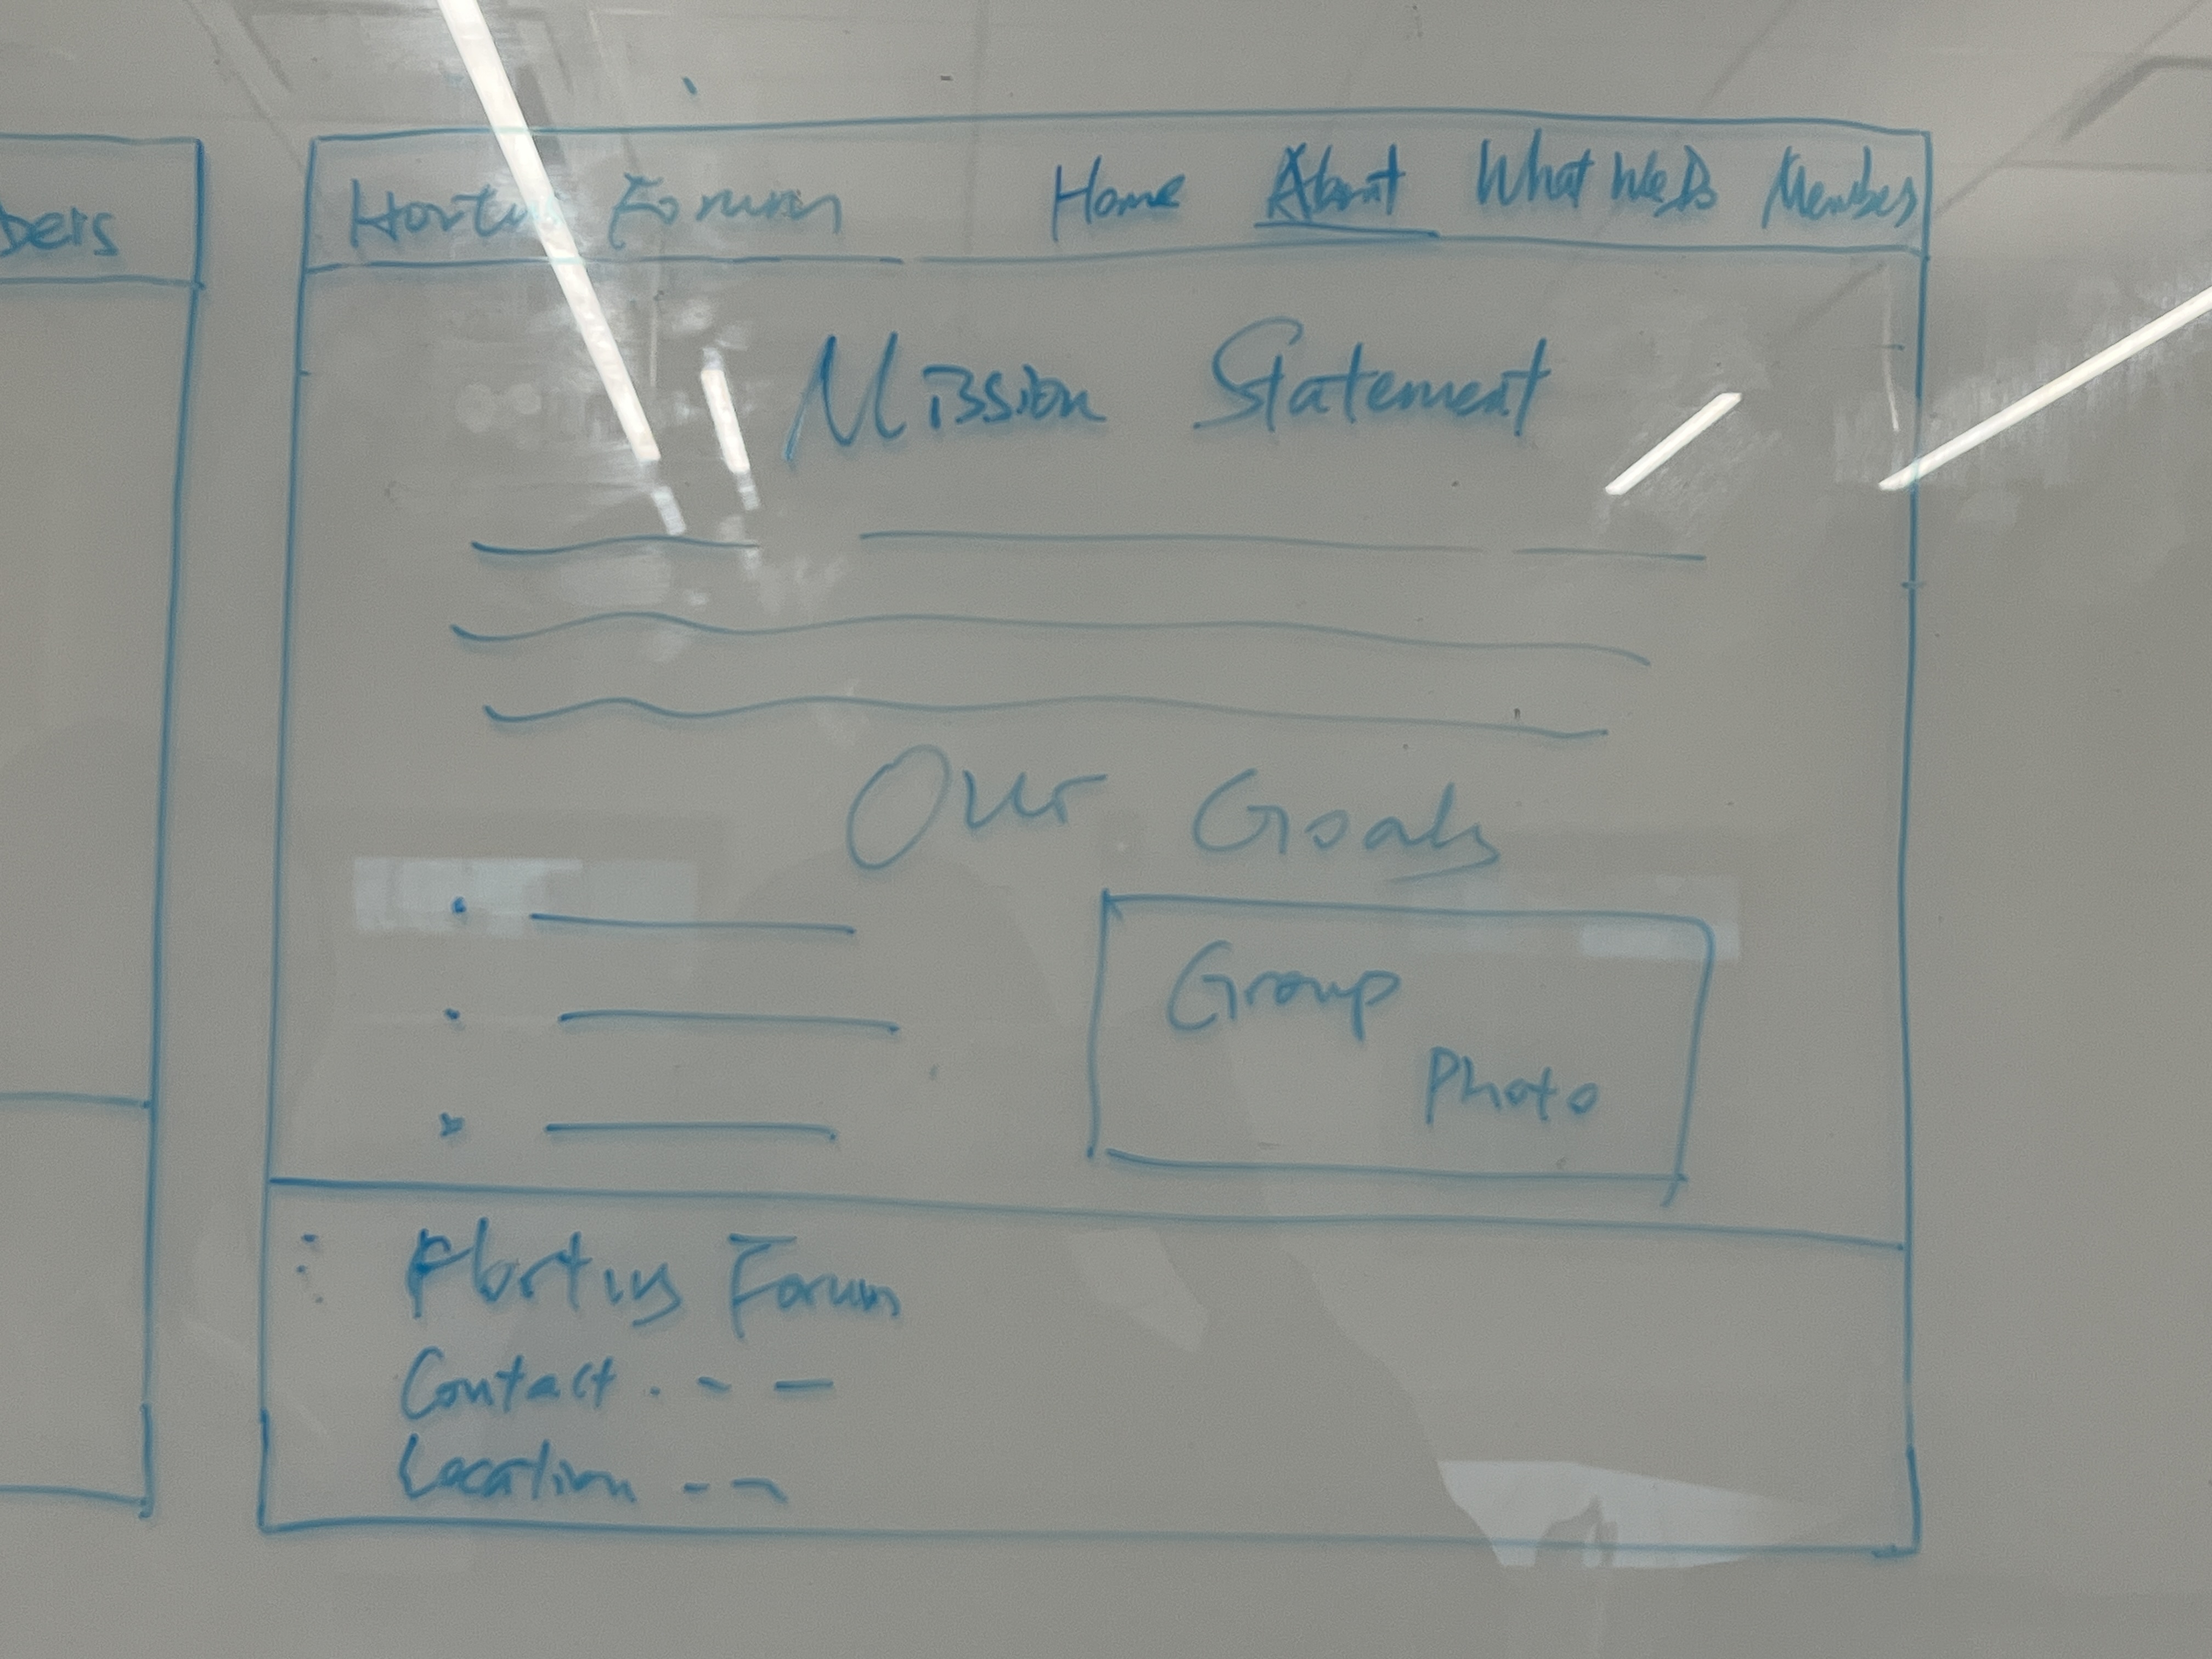 bers
Hortus Forum Home About What We Do Members
Mission Statement
Our Goals
Group
Photo
Hortus Forum
Contact . - -
Location - -